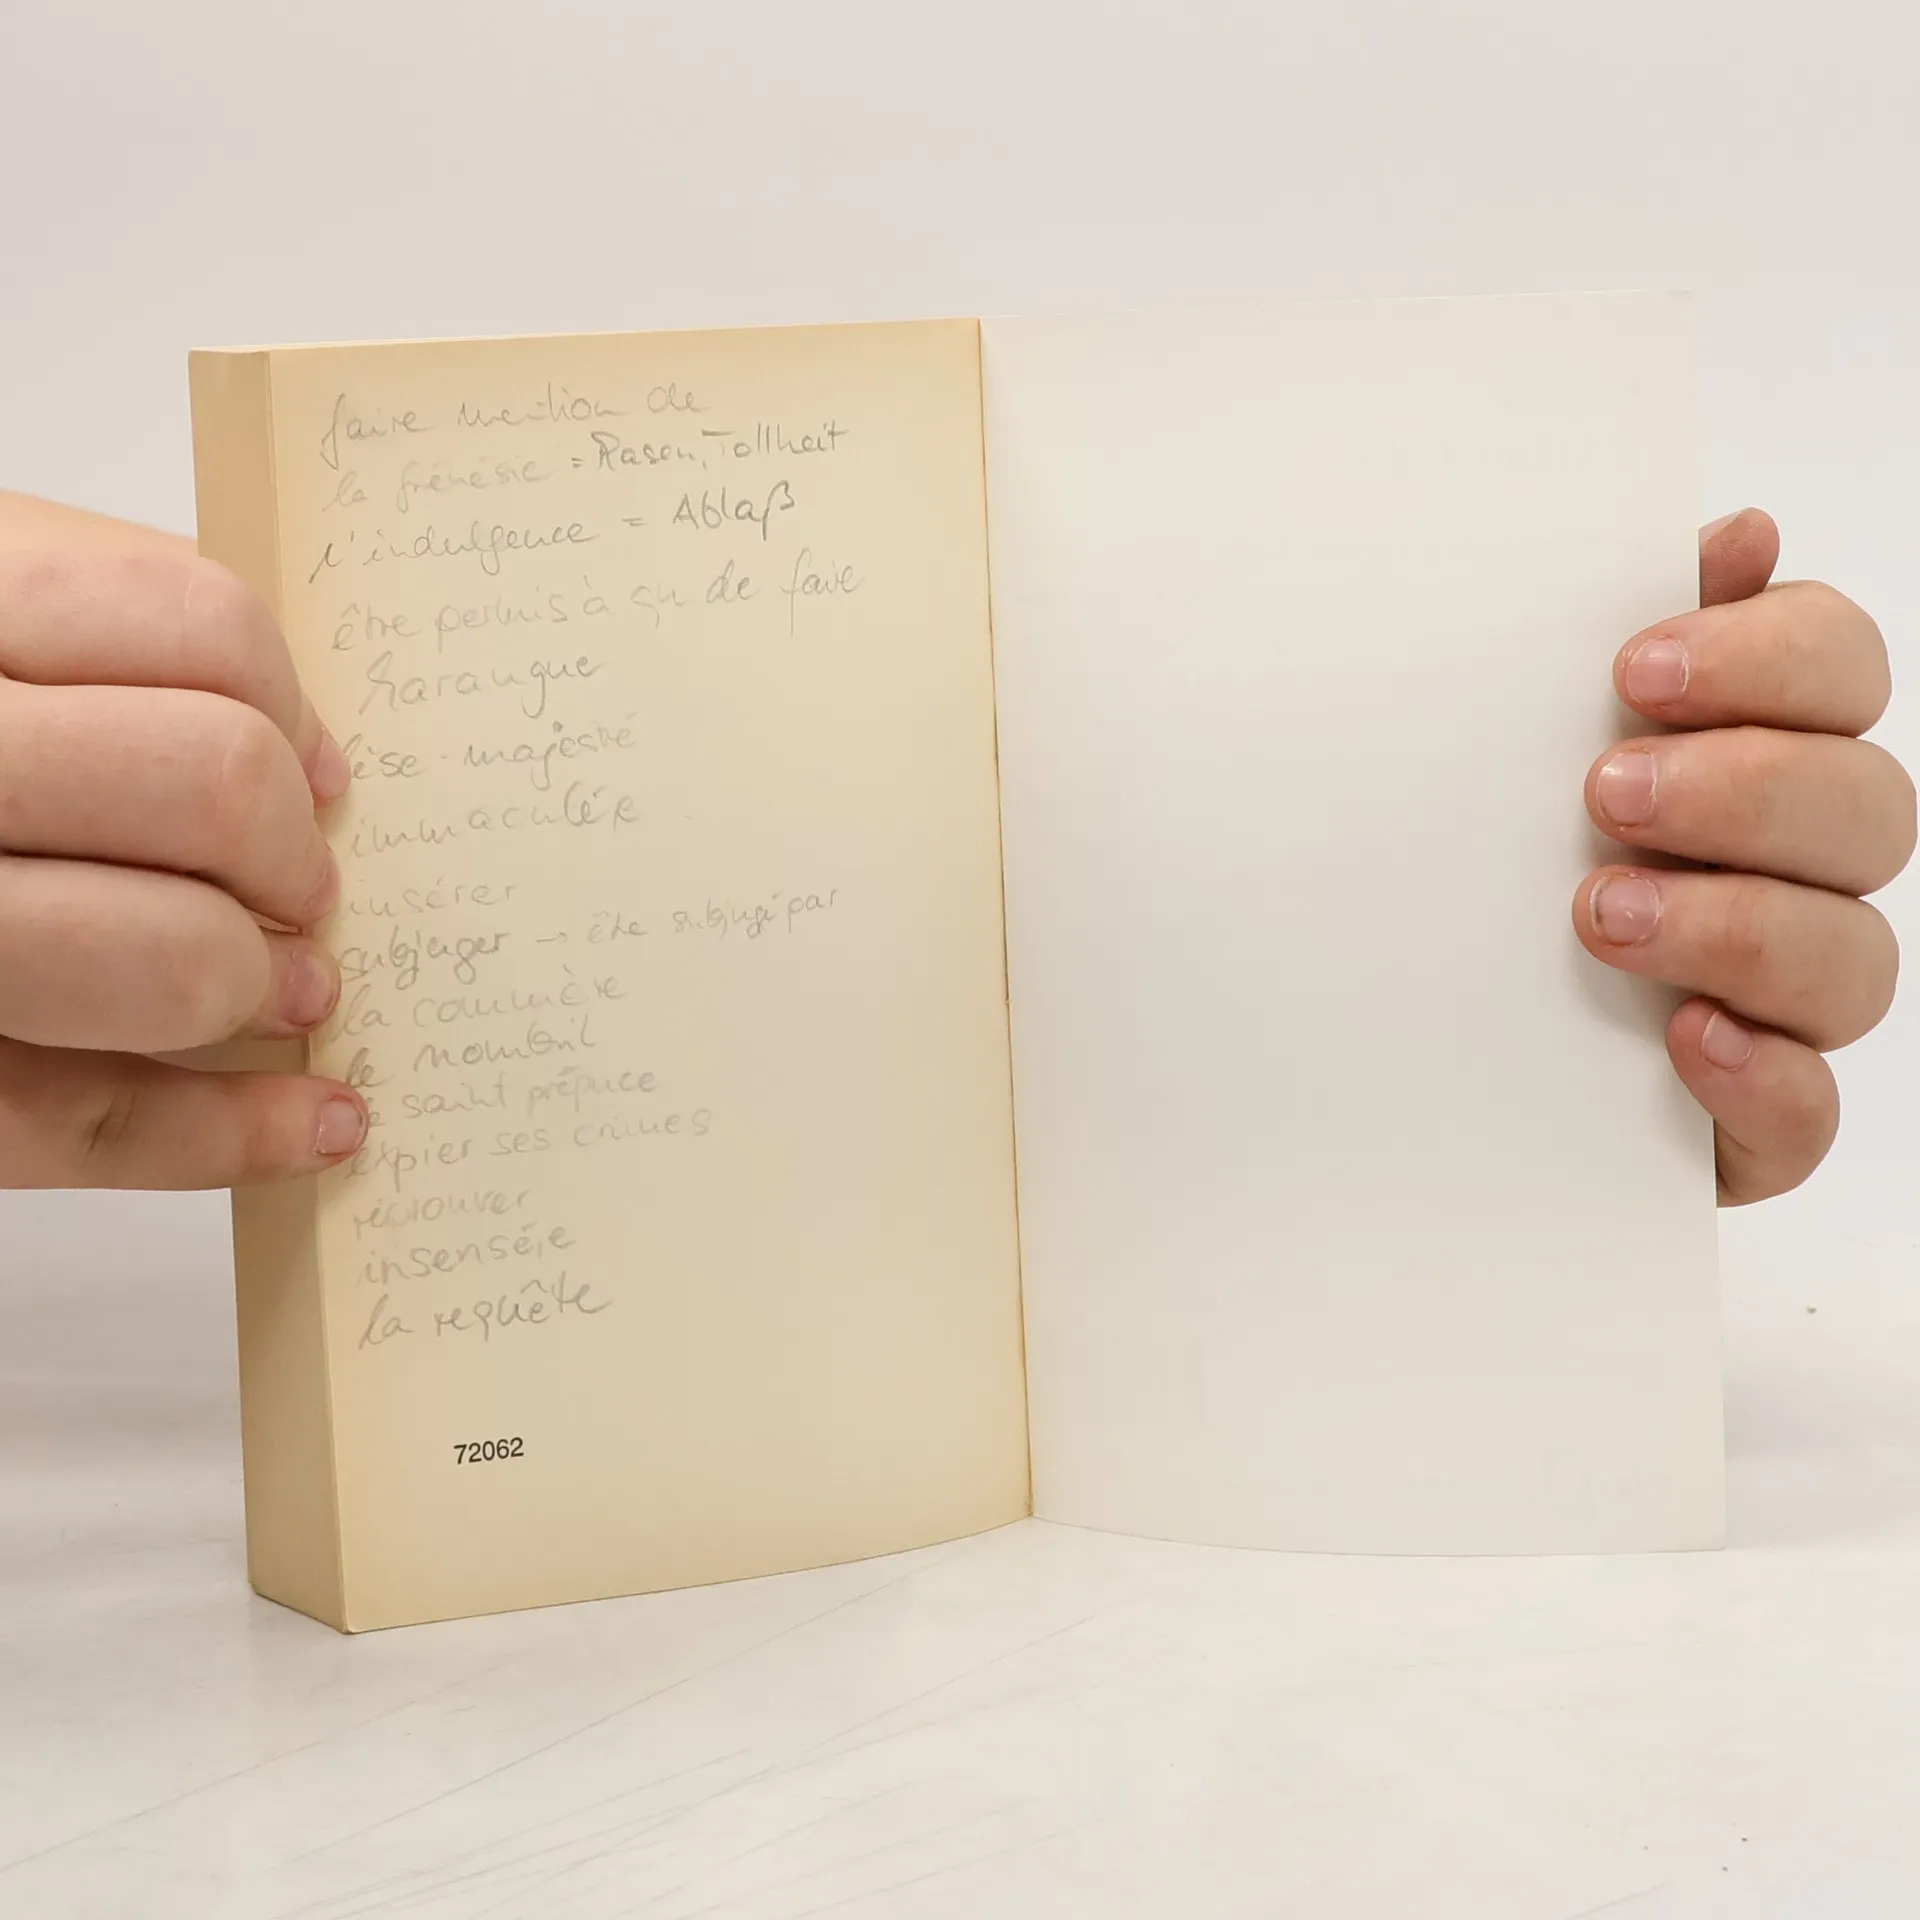 faire mention de
la frénésie = Rasen, Tollheit
l'indulgence = Ablaß
être permis à qn de faire
harangue
lèse-majesté
immaculé,e
insérer
subjuger → être subjugé par
la commère
le nombril
le saint prépuce
expier ses crimes
réprouver
insensé,e
la requête
72062